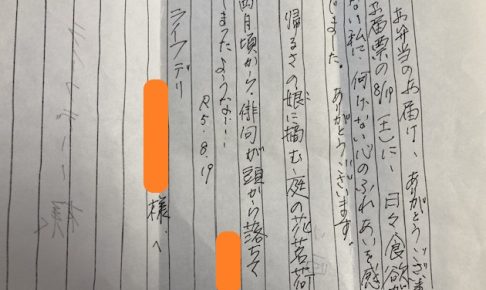 お弁当のお届け、ありがとうござい
お届票の8/19(土)に、日々食欲が
ない私に、何げない心のふれあいを感
じました。ありがとうございます。
帰るさの娘に摘む庭の花茗荷
四月頃から、俳句が頭から落ちて
きたような…
R5.8.19
ライフデリ
様へ